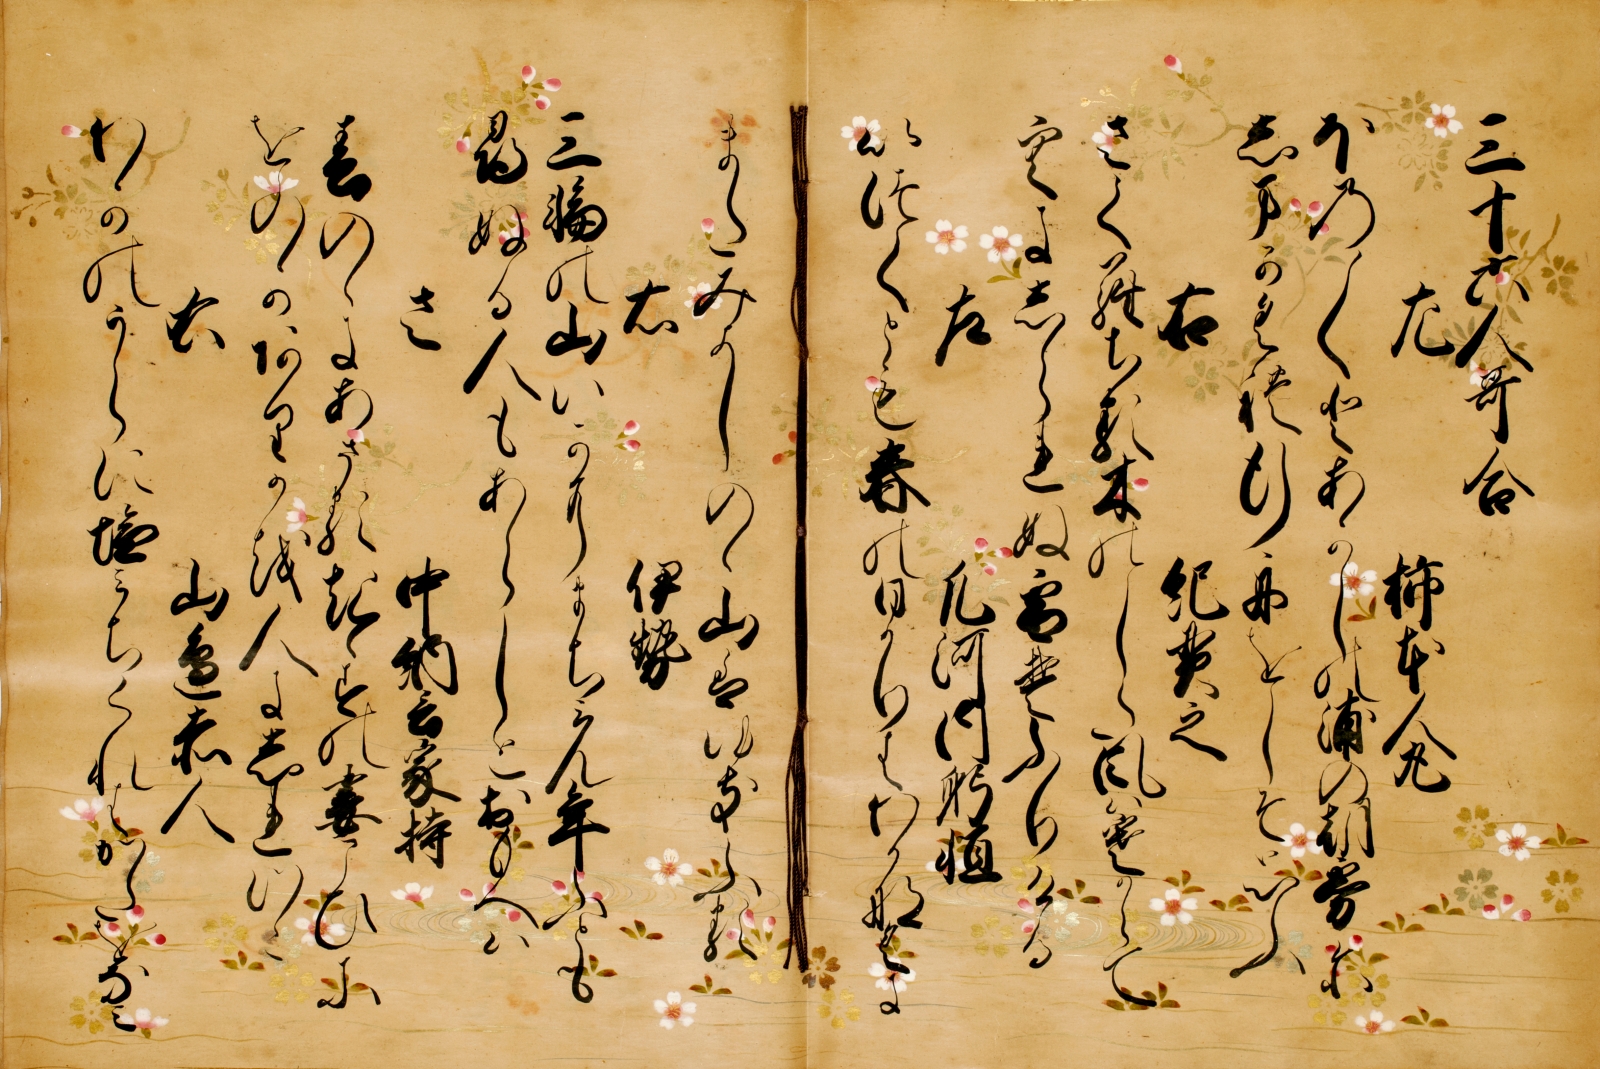 三十六人哥合
左　柿本人丸
ほの〱とあかしの浦の朝霧に
しまかくれ行舟をしそ思ふ
右　紀貫之
さくらちる木のした風は寒からて
空にしられぬ雪そふりける
左　凡河内躬恒
いつくとも春の日かりはわかなくに
またみよしのゝ山は雪ふる
右　伊勢
三輪の山いかにまちみん年ふとも
尋ぬる人もあらしとおもへは
左　中納言家持
春のゝにあさるきゝすの妻こひに
をのかありかを人にしれつゝ
右　山邊赤人
わかのうらに塩みちくれはかたをなみ